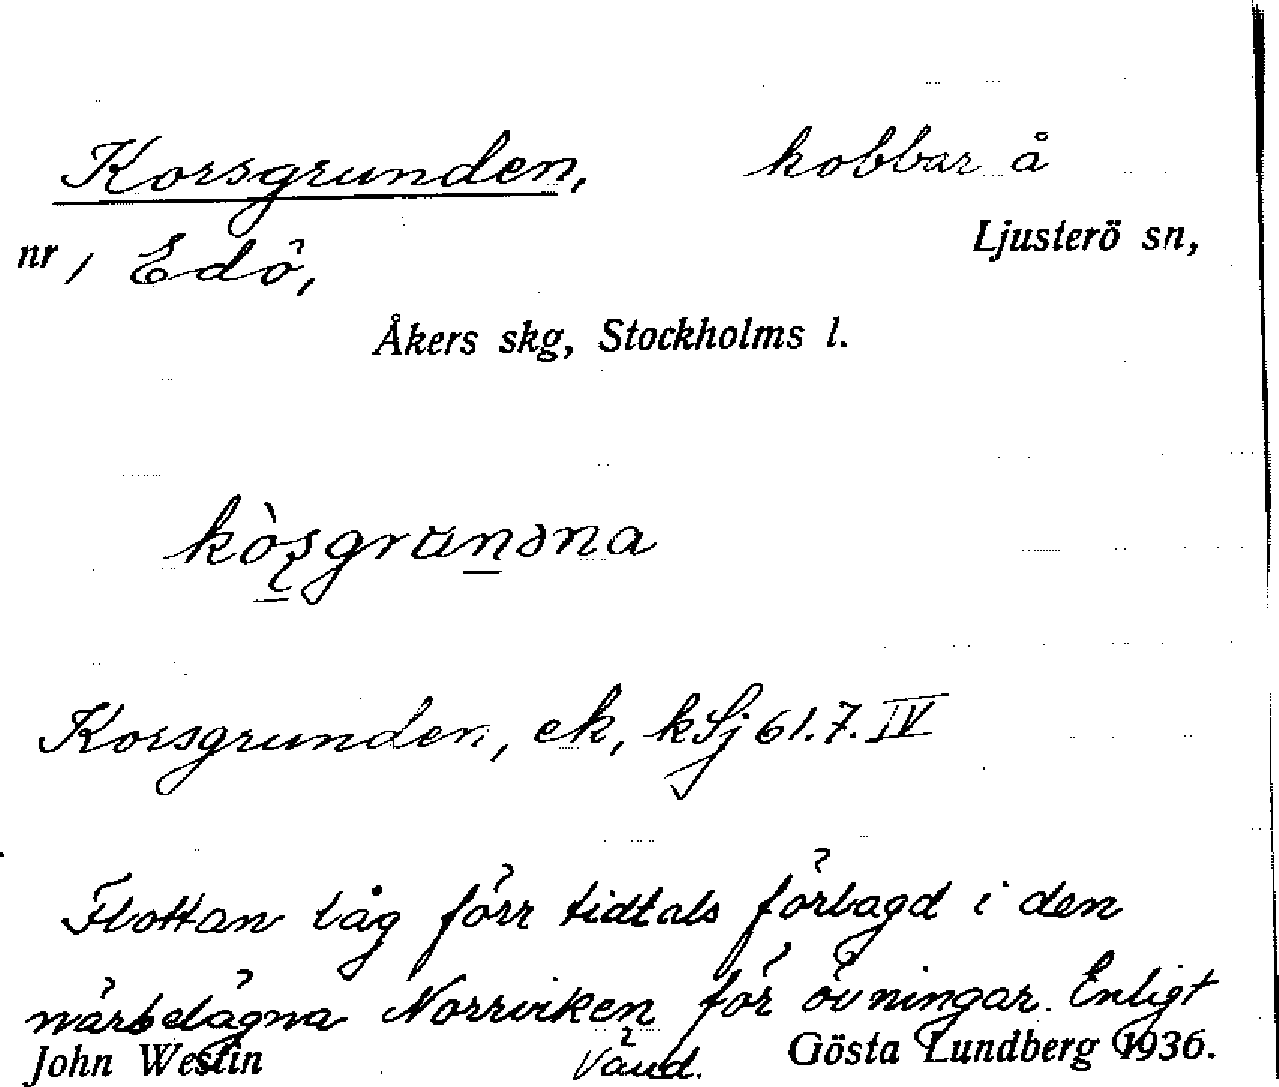 Korsgrunden, kobbar å
nr 1 Edö, Ljusterö sn,
Åkers skg, Stockholms l.
kòʂgrunəna
Korsgrunden, ek, kSj 61.7.IV
Flottan låg förr tidtals förlagd i den
närbelägna Norrviken för övningar. Enligt
John Westin Vänd. Gösta Lundberg 1936.